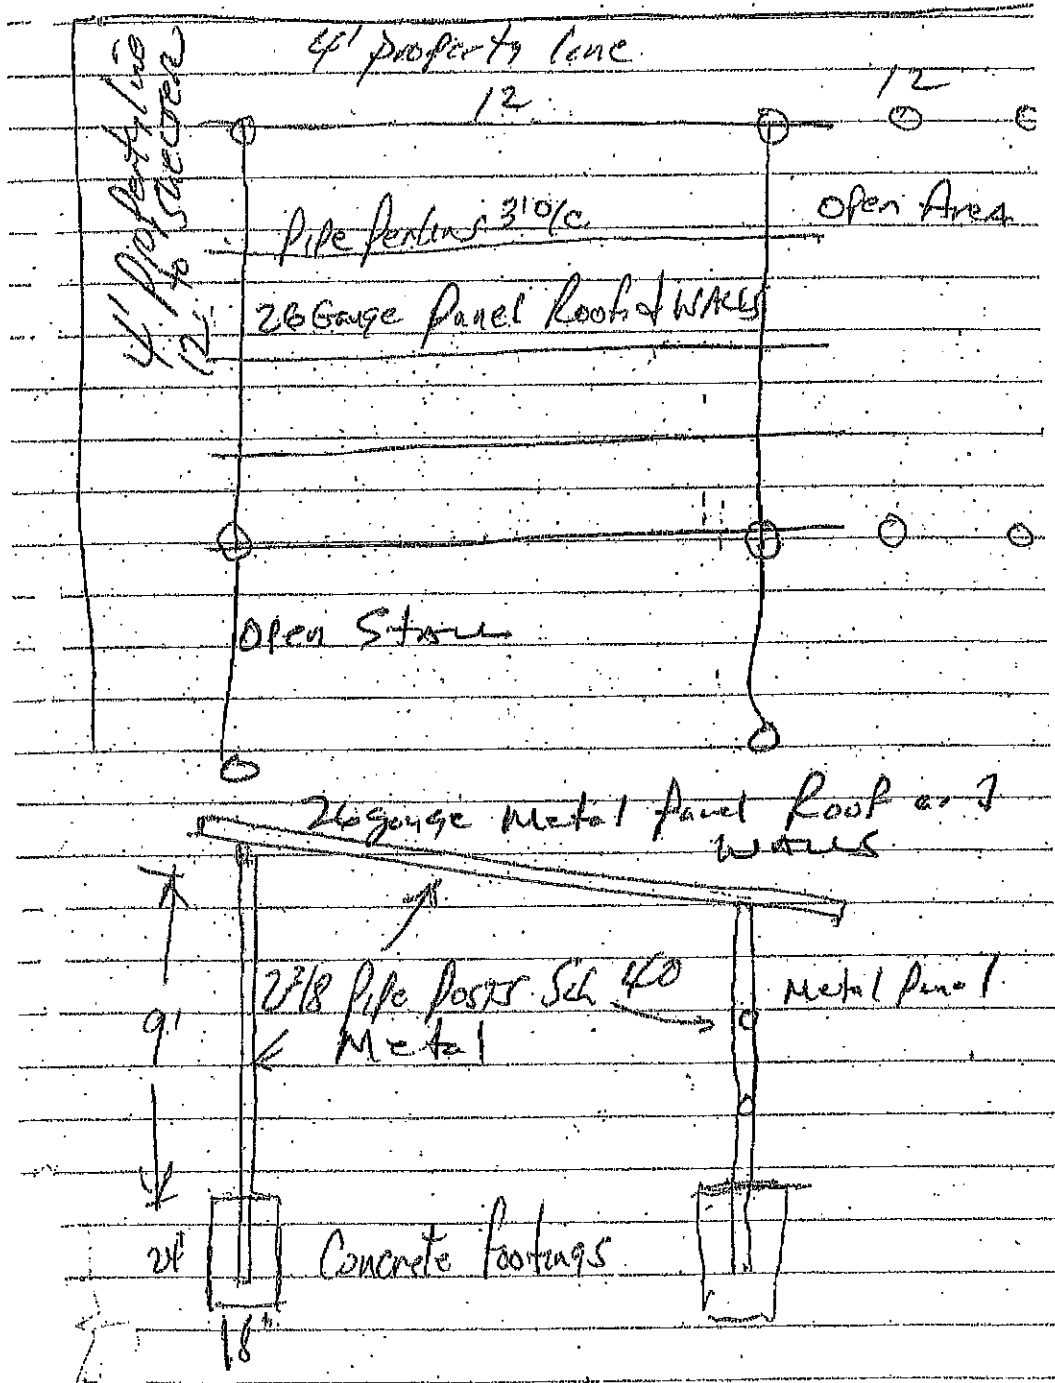 4' property line
12
12
4' Property line
to Shelter
12'
Pipe Perlins 3' o/c
Open Area
26 Gauge Panel Roof & WALLS
Open Stall
26 gauge Metal Panel Roof and
WALLS
2 3/8 Pipe Posts Sch 40
Metal
Metal Panel
9'
24"
Concrete footings
18"